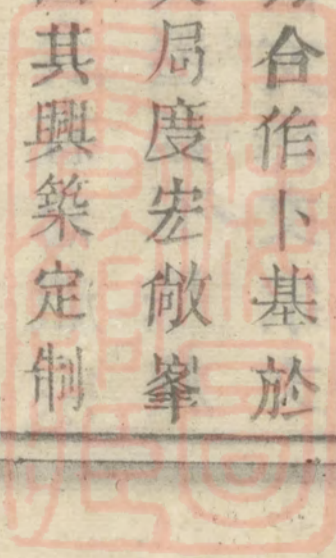 合作卜基於
局度宏敞峯
其興築定制